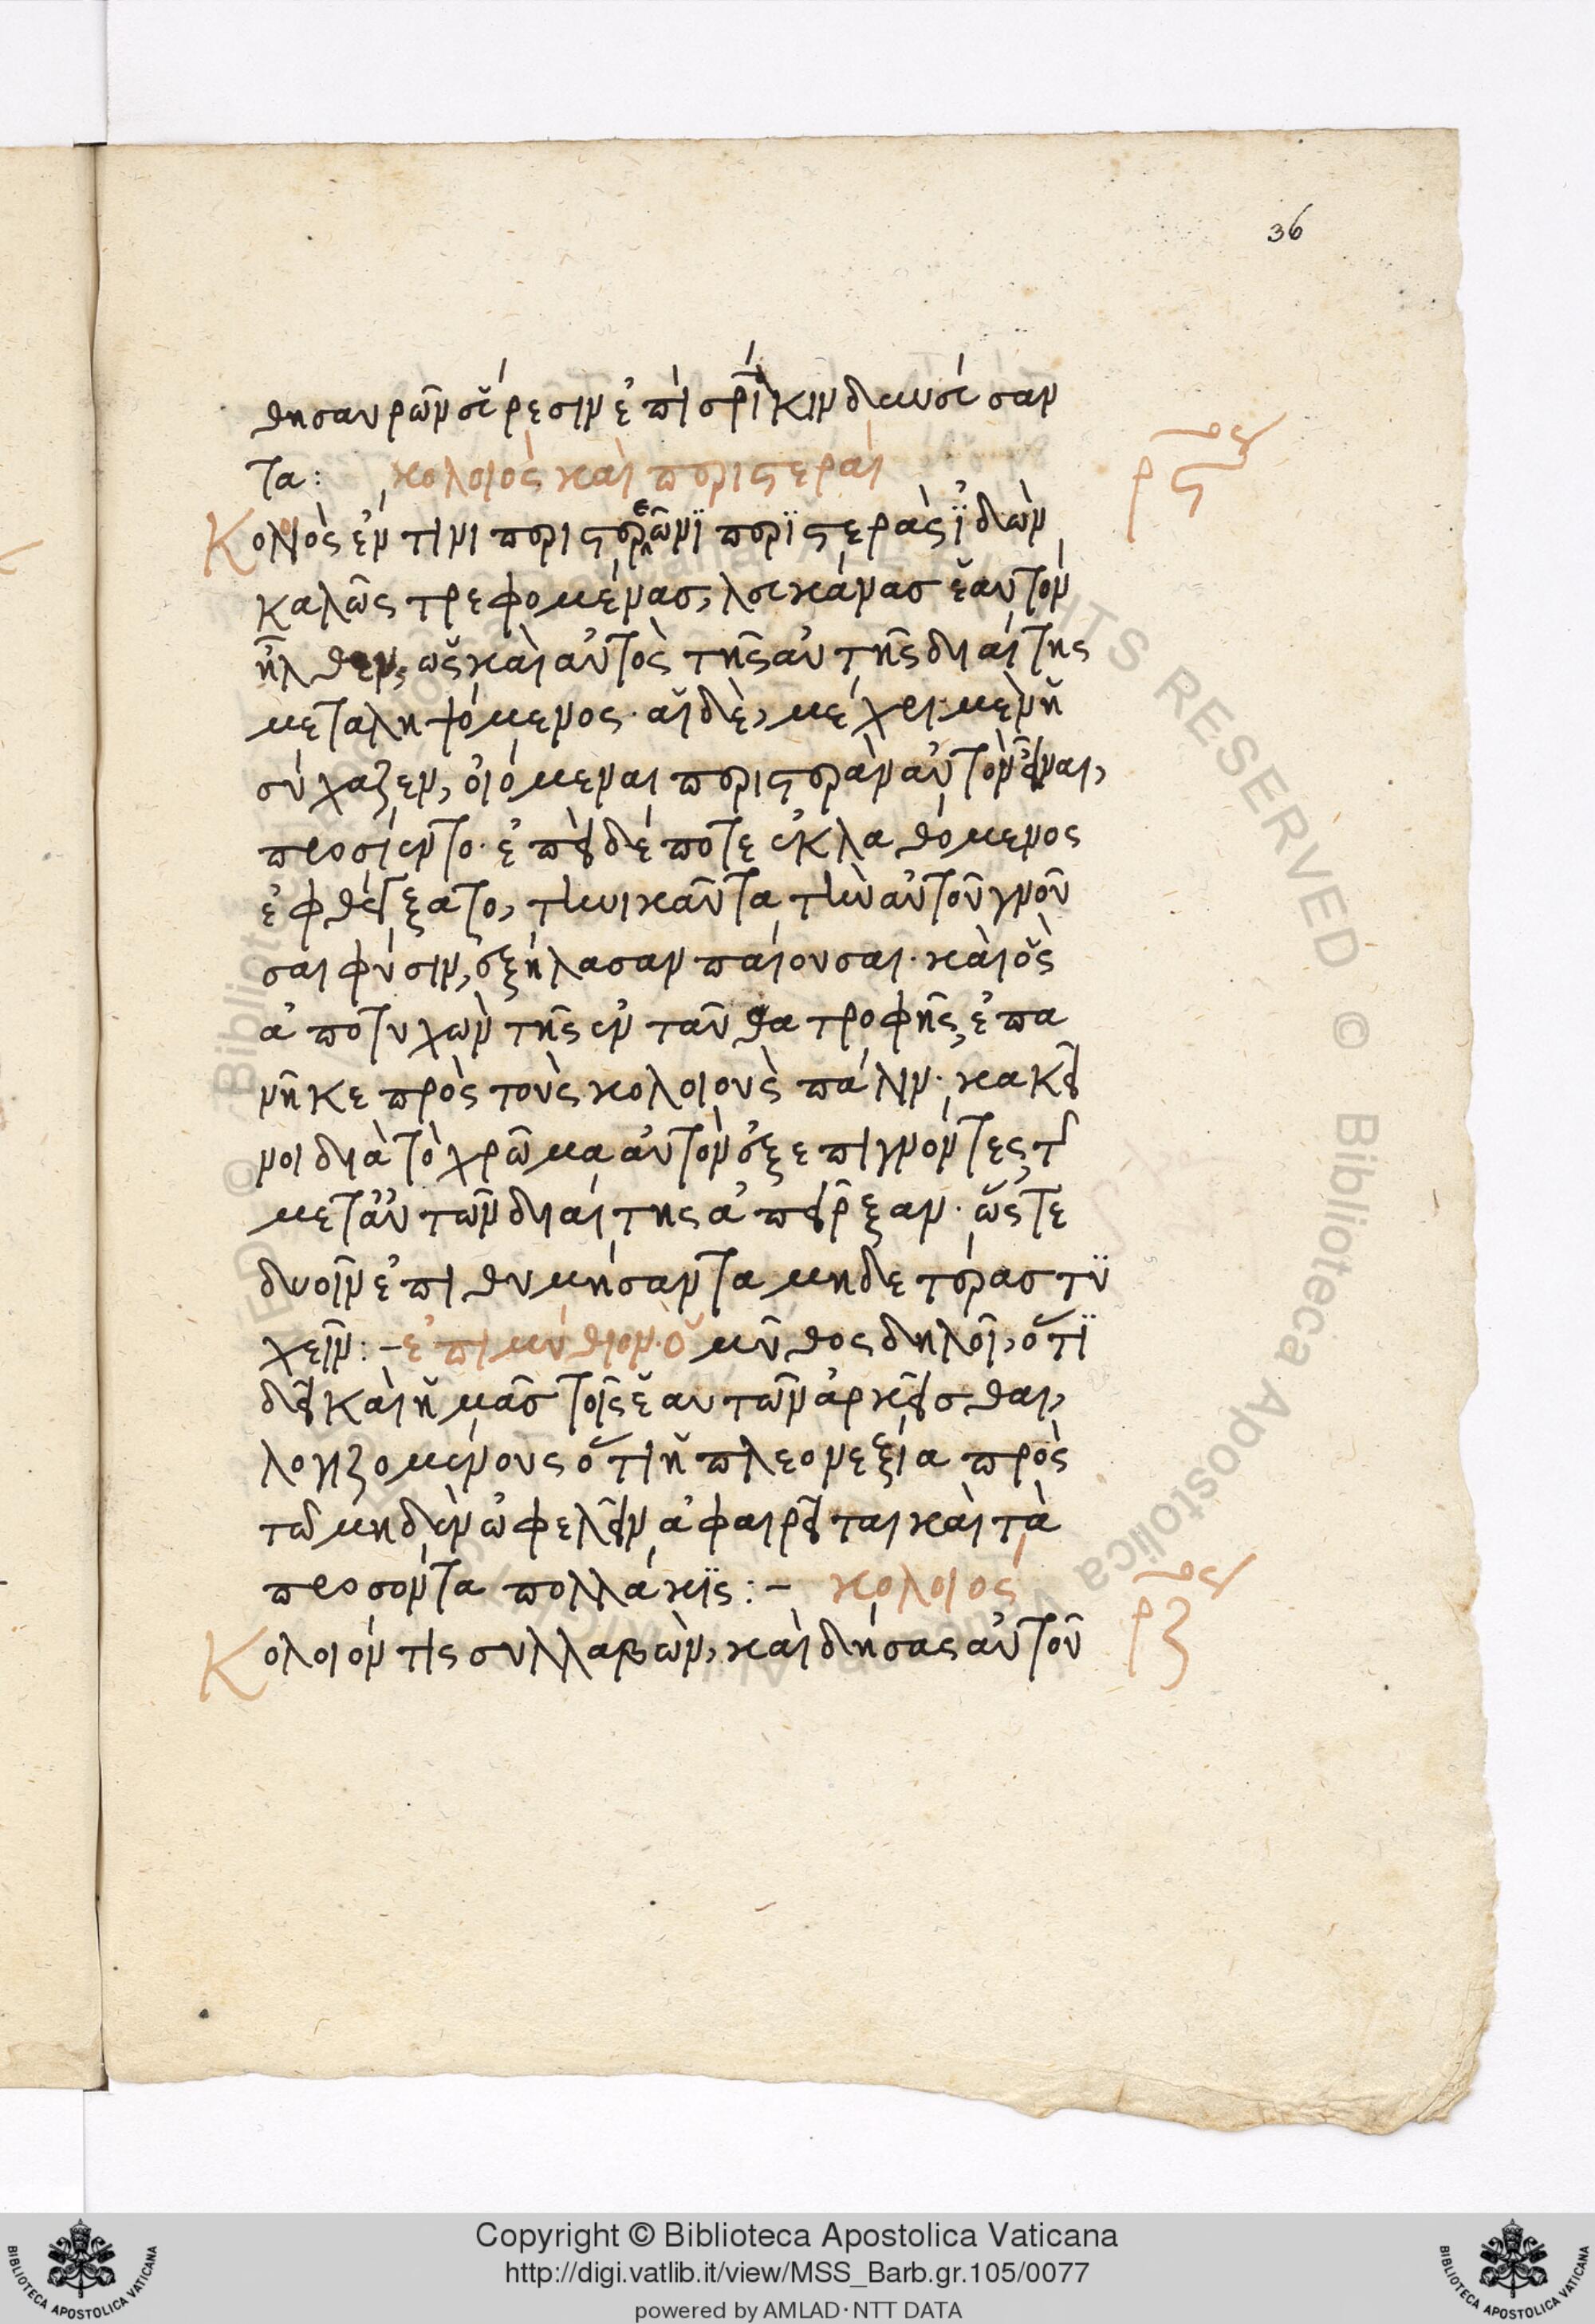 36
θησαυρῶν σέρεσιν ἐπὶ σρὶ κινδυνεύσαν
τα: κολοιὸς καὶ περιστεραί
ρςος
Κολιὸς ἐν τινι περιστερεῶνϊ περϊστερὰς ἵδὼν
καλῶς τρεφομένας, λευκάνας ἑαυτὸν
ἦλθεν, ὡς καὶ αὐτὸς τῆς αὐτῆς διαίτης
μεταληψόμενος· αἱ δὲ, μέχρι μὲν ἡ
σύχαζεν, οἰόμεναι περιστερὰν αὐτὸν εἶναι,
προσίεντο· ἐπεὶ δέ ποτε ἐκλαθόμενος
ἐφθέγξατο, τηνικαῦτα τὴν αὐτοῦ γνοῦ
σαι φύσιν, ἐξήλασαν παίουσαι· καὶ ὃς
ἀποτυχὼν τῆς ἐνταῦθα τροφῆς, ἐπα
νῆκε πρὸς τοὺς κολοιοὺς πάλιν· κακεῖ
νοι διὰ τὸ χρῶμα αὐτὸν ἐξεπιγνόντες, τ
μεταὐτῶν διαίτης ἀπεῖρξαν· ὥστε
δυοῖν ἐπιθυμήσαντα μηδετέρας τϋ
χεῖν:- ἐπιμύθιον· ὁ μῦθος δηλοῖ, ὅτϊ
δεῖ καὶ ἡμᾶς τοῖς ἑαυτῶν ἀρκεῖσθαι,
λογιζομένους ὅτι ἡ πλεονεξία πρὸς
τῶ μηδὲν ὠφελεῖν ἀφαιρεῖται καὶ τὰ
προσόντα πολλάκϊς:- κολοιός
ρζος
Κολοιόν τὶς συλλαβὼν, καὶ δήσας αὐτοῦ
Copyright © Biblioteca Apostolica Vaticana
http://digi.vatlib.it/view/MSS_Barb.gr.105/0077
powered by AMLAD·NTT DATA